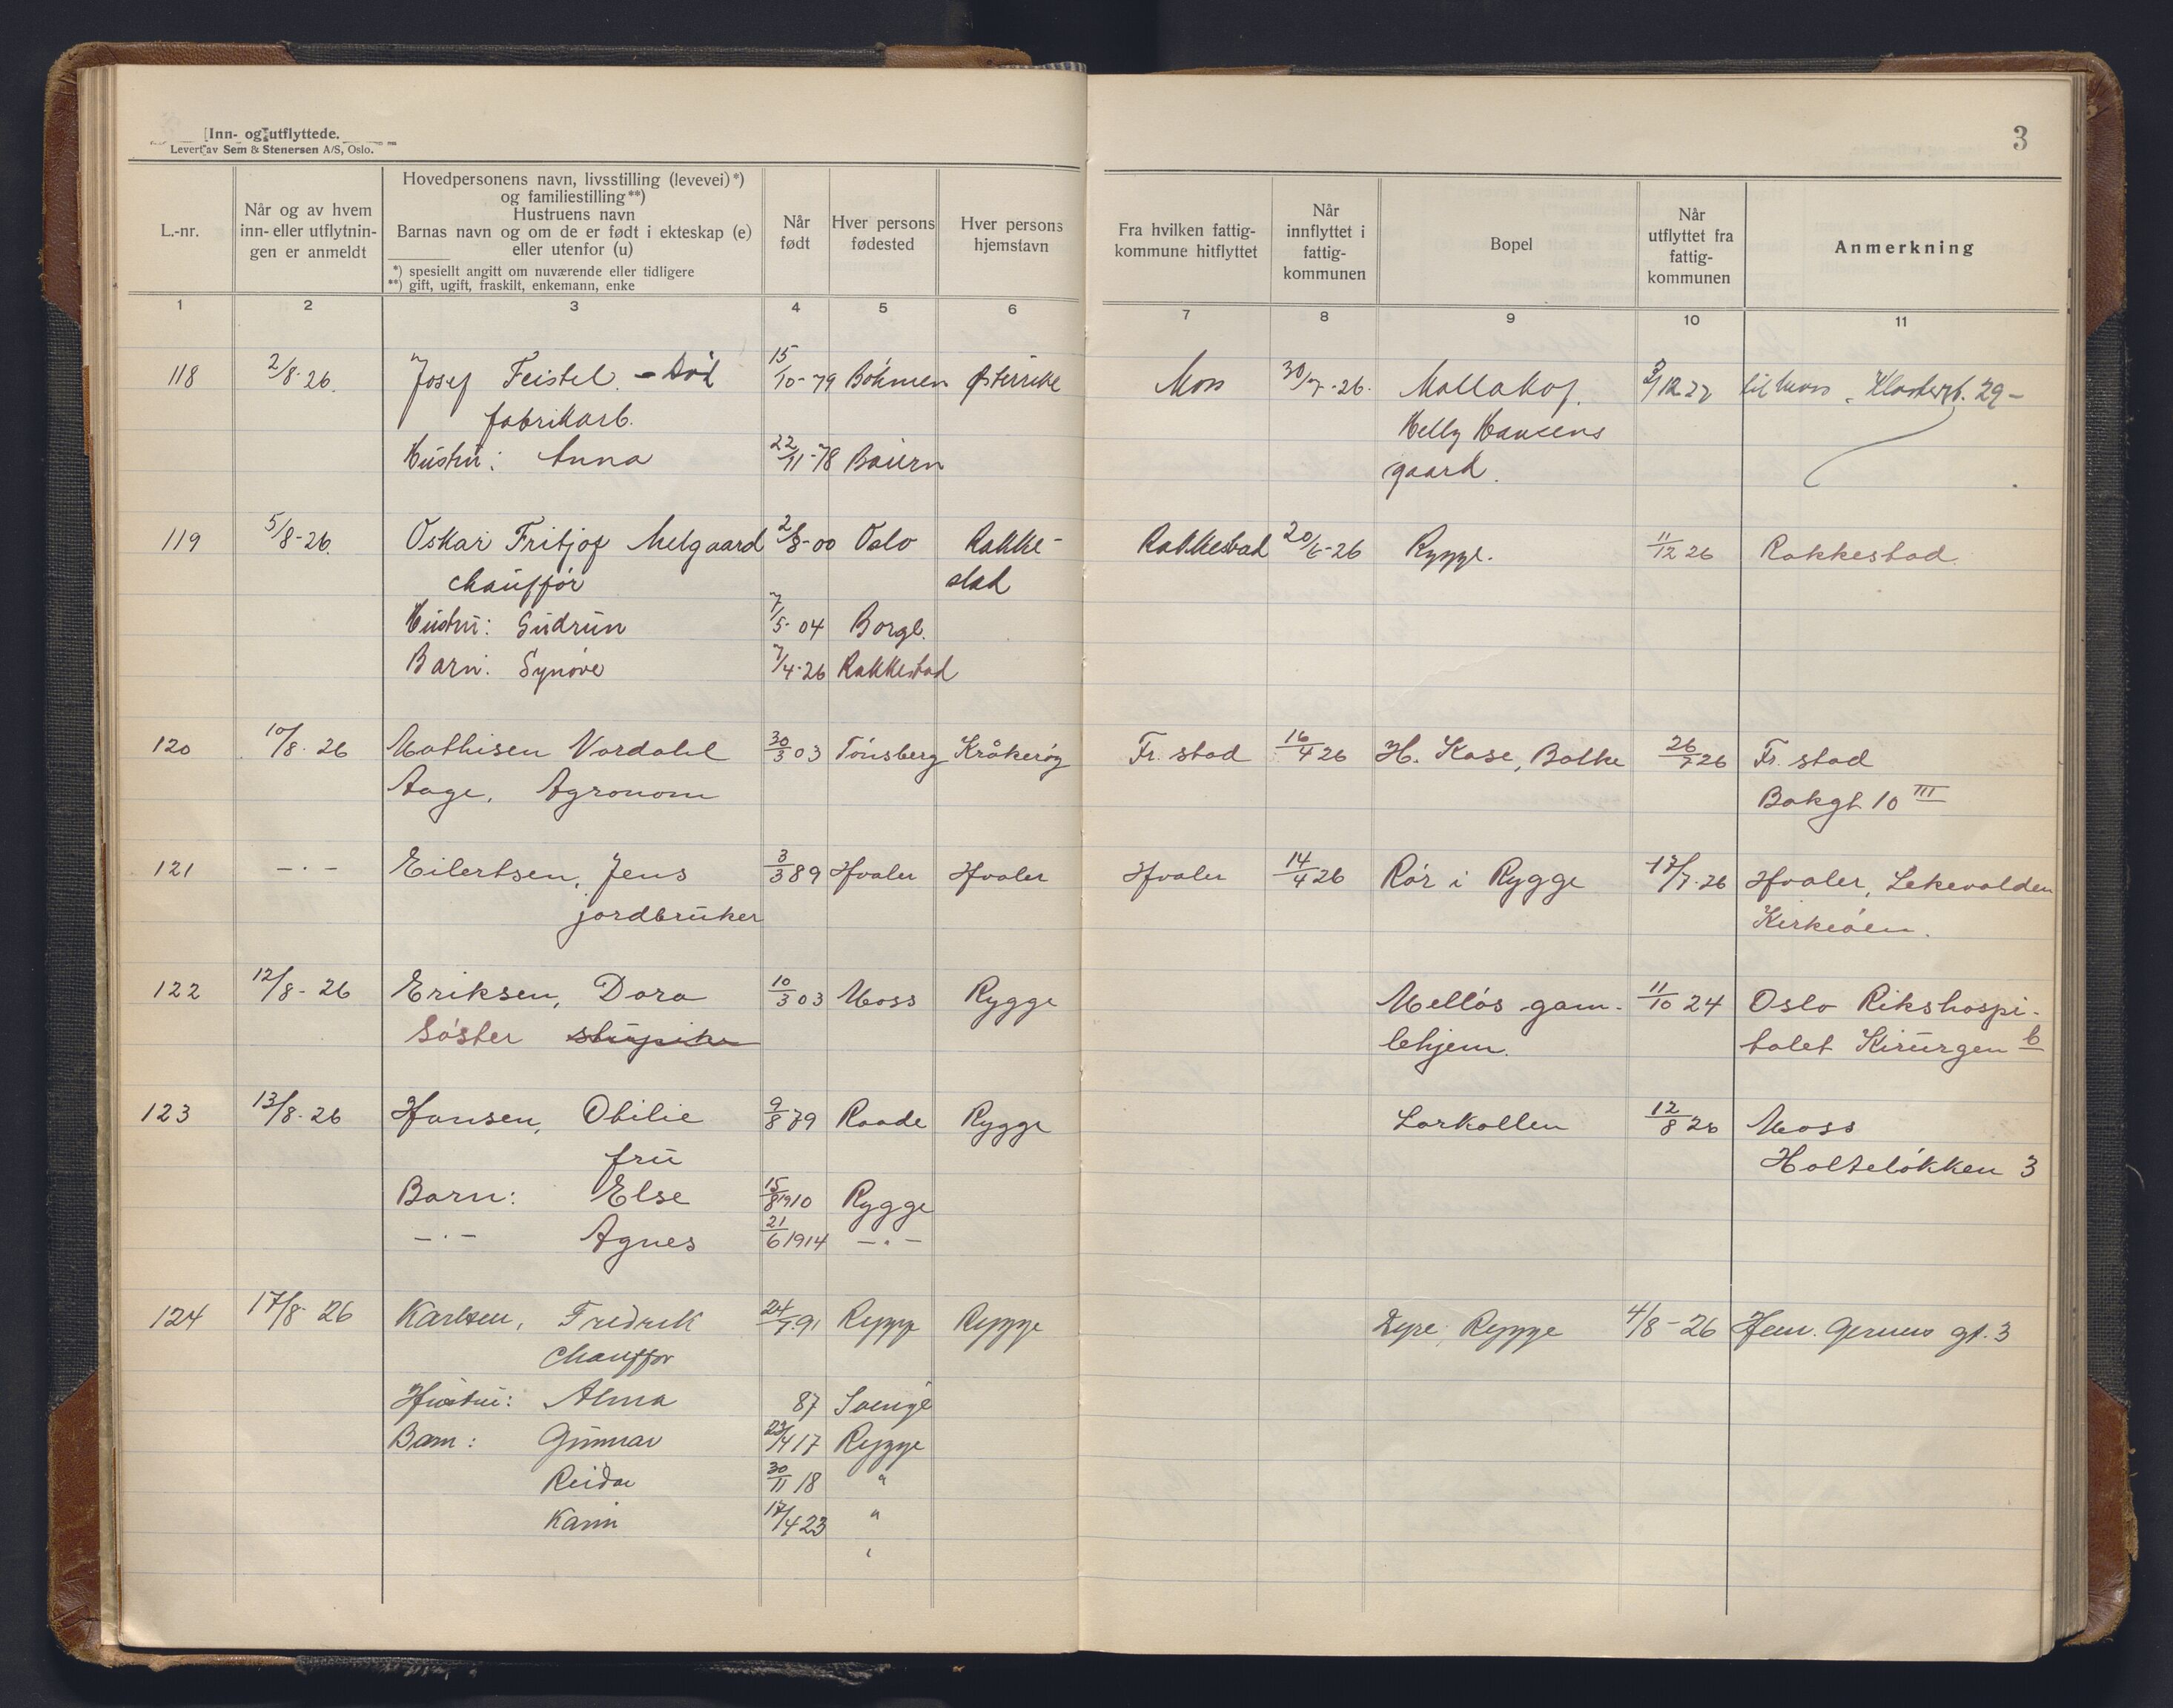 Inn- og utflyttede.
Levert av Sem & Stenersen A/S, Oslo.
3
L.-nr.
Når og av hvem
inn- eller utflytnin-
gen er anmeldt
Hovedpersonens navn, livsstilling (levevei) *)
og familiestilling **)
Hustruens navn
Barnas navn og om de er født i ekteskap (e)
eller utenfor (u)
*) spesiellt angitt om nuværende eller tidligere
**) gift, ugift, fraskilt, enkemann, enke
Når
født
Hver persons
fødested
Hver persons
hjemstavn
Fra hvilken fattig-
kommune hitflyttet
Når
innflyttet i
fattig-
kommunen
Bopel
Når
utflyttet fra
fattig-
kommunen
Anmerkning
1 2 3 4 5 6 7 8 9 10 11
118 2/8-26. Josef Feistel. - Død 15/10-79 Böhmen Østerrike Moss 30/7-26. Mallakof. 3/12 27 til Moss, Klostergt. 29 -
fabrikarb. Helly Hansens
Hustru: Anna 22/11-78 Baiern gaard.
119 5/8-26. Oskar Fritjof Melgaard 2/8-00 Oslo Rakke- Rakkestad 20/6-26 Rygge. 11/12 26 Rakkestad.
chauffør stad
Hustru: Gudrun 7/5-04 Borge.
Barn: Synøve 7/4-26 Rakkestad
120 10/8-26 Mathisen Vardahl 30/3 03 Tønsberg Kråkerøy Fr. stad 16/4 26 H. Kase, Balke 26/7 26 Fr. stad
Aage, Agronom Bakgt. 10 III
121 -·- Eilertsen, Jens 3/3 89 Hvaler Hvaler Hvaler 14/4 26 Rør i Rygge 17/7-26 Hvaler, Lekevolden
jordbruker Kirkeøen.
122 12/8-26 Eriksen, Dora 10/3 03 Moss Rygge Melløs gam- 11/10 24 Oslo Rikshospi-
Søster stuepike lehjem. talet Kirurgen b
123 13/8-26 Hansen, Otilie 9/8 79 Raade Rygge Larkollen 12/8 26 Moss
fru Holteløkken 3
Barn: Else 15/8 1910 Rygge
-·- Agnes 21/6 1914 -·-
124 17/8-26 Karlsen, Fredrik 24/7-91 Rygge Rygge Dyre, Rygge 4/8-26 Hen. Gerners gt. 3
Chauffør
Hustru: Alma 87 Sverige
Barn: Gunnar 23/4 17 Rygge
Reidar 30/11 18 "
Karin 17/4 23 "